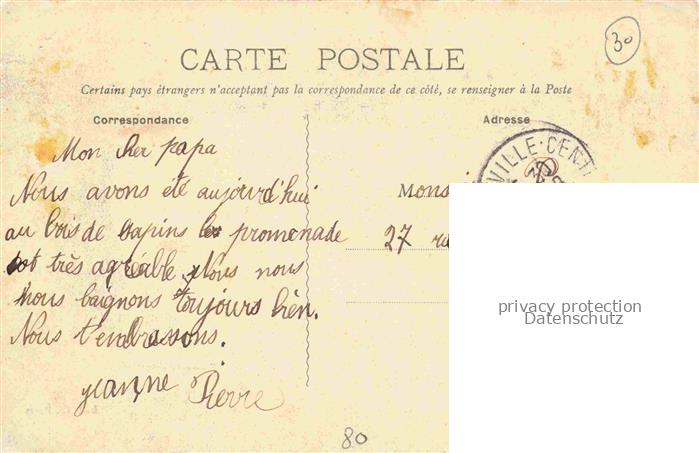 30
CARTE POSTALE
Certains pays étrangers n'acceptant pas la correspondance de ce côté, se renseigner à la Poste
Correspondance
Adresse
Mon cher papa
Nous avons été aujourd'hui
au bois de sapins la promenade
est très agréable. Nous nous
nous baignons toujours bien.
Nous t'embrassons.
Jeanne Pierre
VILLE-CENT
Monsi
27 ru
privacy protection
Datenschutz
80